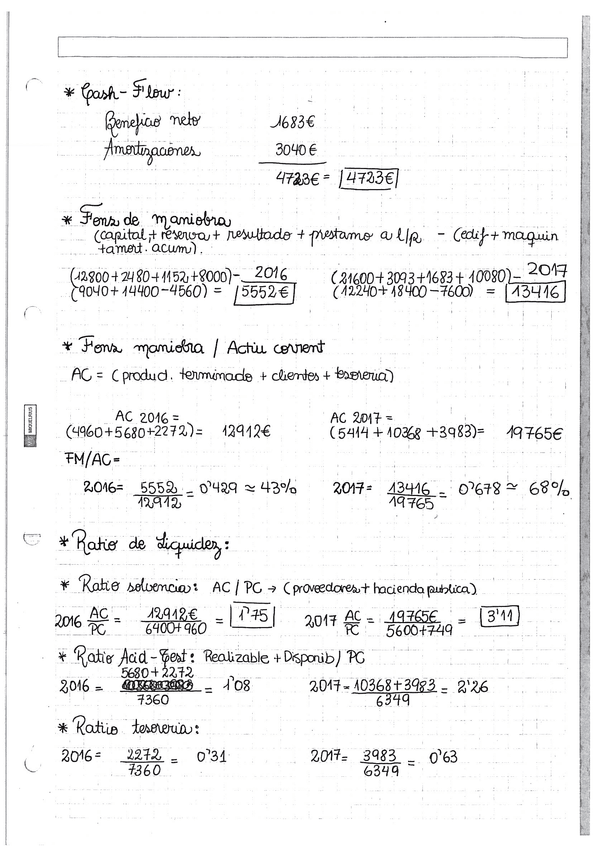 * Cash-Flow:
Beneficio neto 1683€
Amortizaciones 3040€
4723€ = 4723€
* Fons de maniobra
(capital + reserva + resultado + prestamo a l/p - (edif + maquin
+ amort. acum).
(12800+2480+1152+8000)- 2016
(9040+14400-4560) = 5552€
(21600+3093+1683+10080)- 2017
(12240+18400-7600) = 13416
* Fons maniobra / Actiu corrent
AC = (product. terminado + clientes + tesoreria)
AC 2016 =
(4960+5680+2272) = 12912€
AC 2017 =
(5414+10368+3983) = 19765€
FM/AC =
2016 = 5552/12912 = 0'429 ≈ 43%
2017 = 13416/19765 = 0'678 ≈ 68%
* Ratio de Liquidez:
* Ratio solvencia: AC/PC → (proveedores + hacienda publica)
2016 AC/PC = 12912€/6400+960 = 1'75
2017 AC/PC = 19765€/5600+749 = 3'11
* Ratio Acid-Test: Realizable + Disponib/PC
2016 = 5680+2272/7360 = 1'08
2017 = 10368+3983/6349 = 2'26
* Ratiio tesoreria:
2016 = 2272/7360 = 0'31
2017 = 3983/6349 = 0'63
MIQUELRIUS